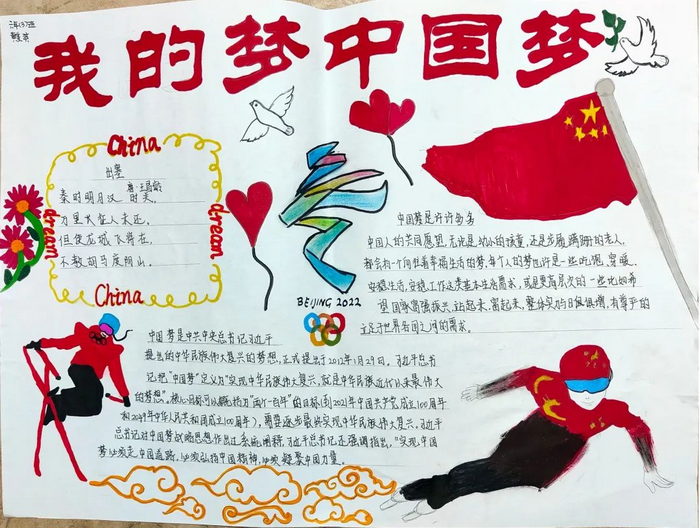 我的梦中国梦
China
出塞
唐·王昌龄
秦时明月汉 时关,
万里长征人未还。
但使龙城飞将在,
不教胡马度阴山。
dream
dream
China
BEIJING 2022
中国梦是许许多多
中国人的共同愿望,无论是幼小的孩童,还是步履蹒跚的老人,
都会有一个向往着幸福生活的梦,每个人的梦也许是一些吃饱,穿暖、
安稳生活,安稳工作这类基本生活需求,或是更高层次的一些比如希
望国家富强振兴,站起来,富起来,整体实力日俱增,有尊严的
立足于世界各国之间的需求。
中国梦是中共中央总书记习近平
提出的中华民族伟大复兴的梦想,正式提出于2012年1月29日。习近平总书
记把"中国梦"定义为"实现中华民族伟大复兴,就是中华民族近代以来最伟大
的梦想",核心目标可以概括为"两个一百年"的目标(到2021年中国共产党成立100周年
和2049年中华人民共和国成立100周年),需要逐步最终实现中华民族伟大复兴。习近平
总书记对中国梦战略思想作出过系统阐释,习近平总书记还强调指出,"实现中国
梦必须走中国道路,必须弘扬中国精神,必须凝聚中国力量。